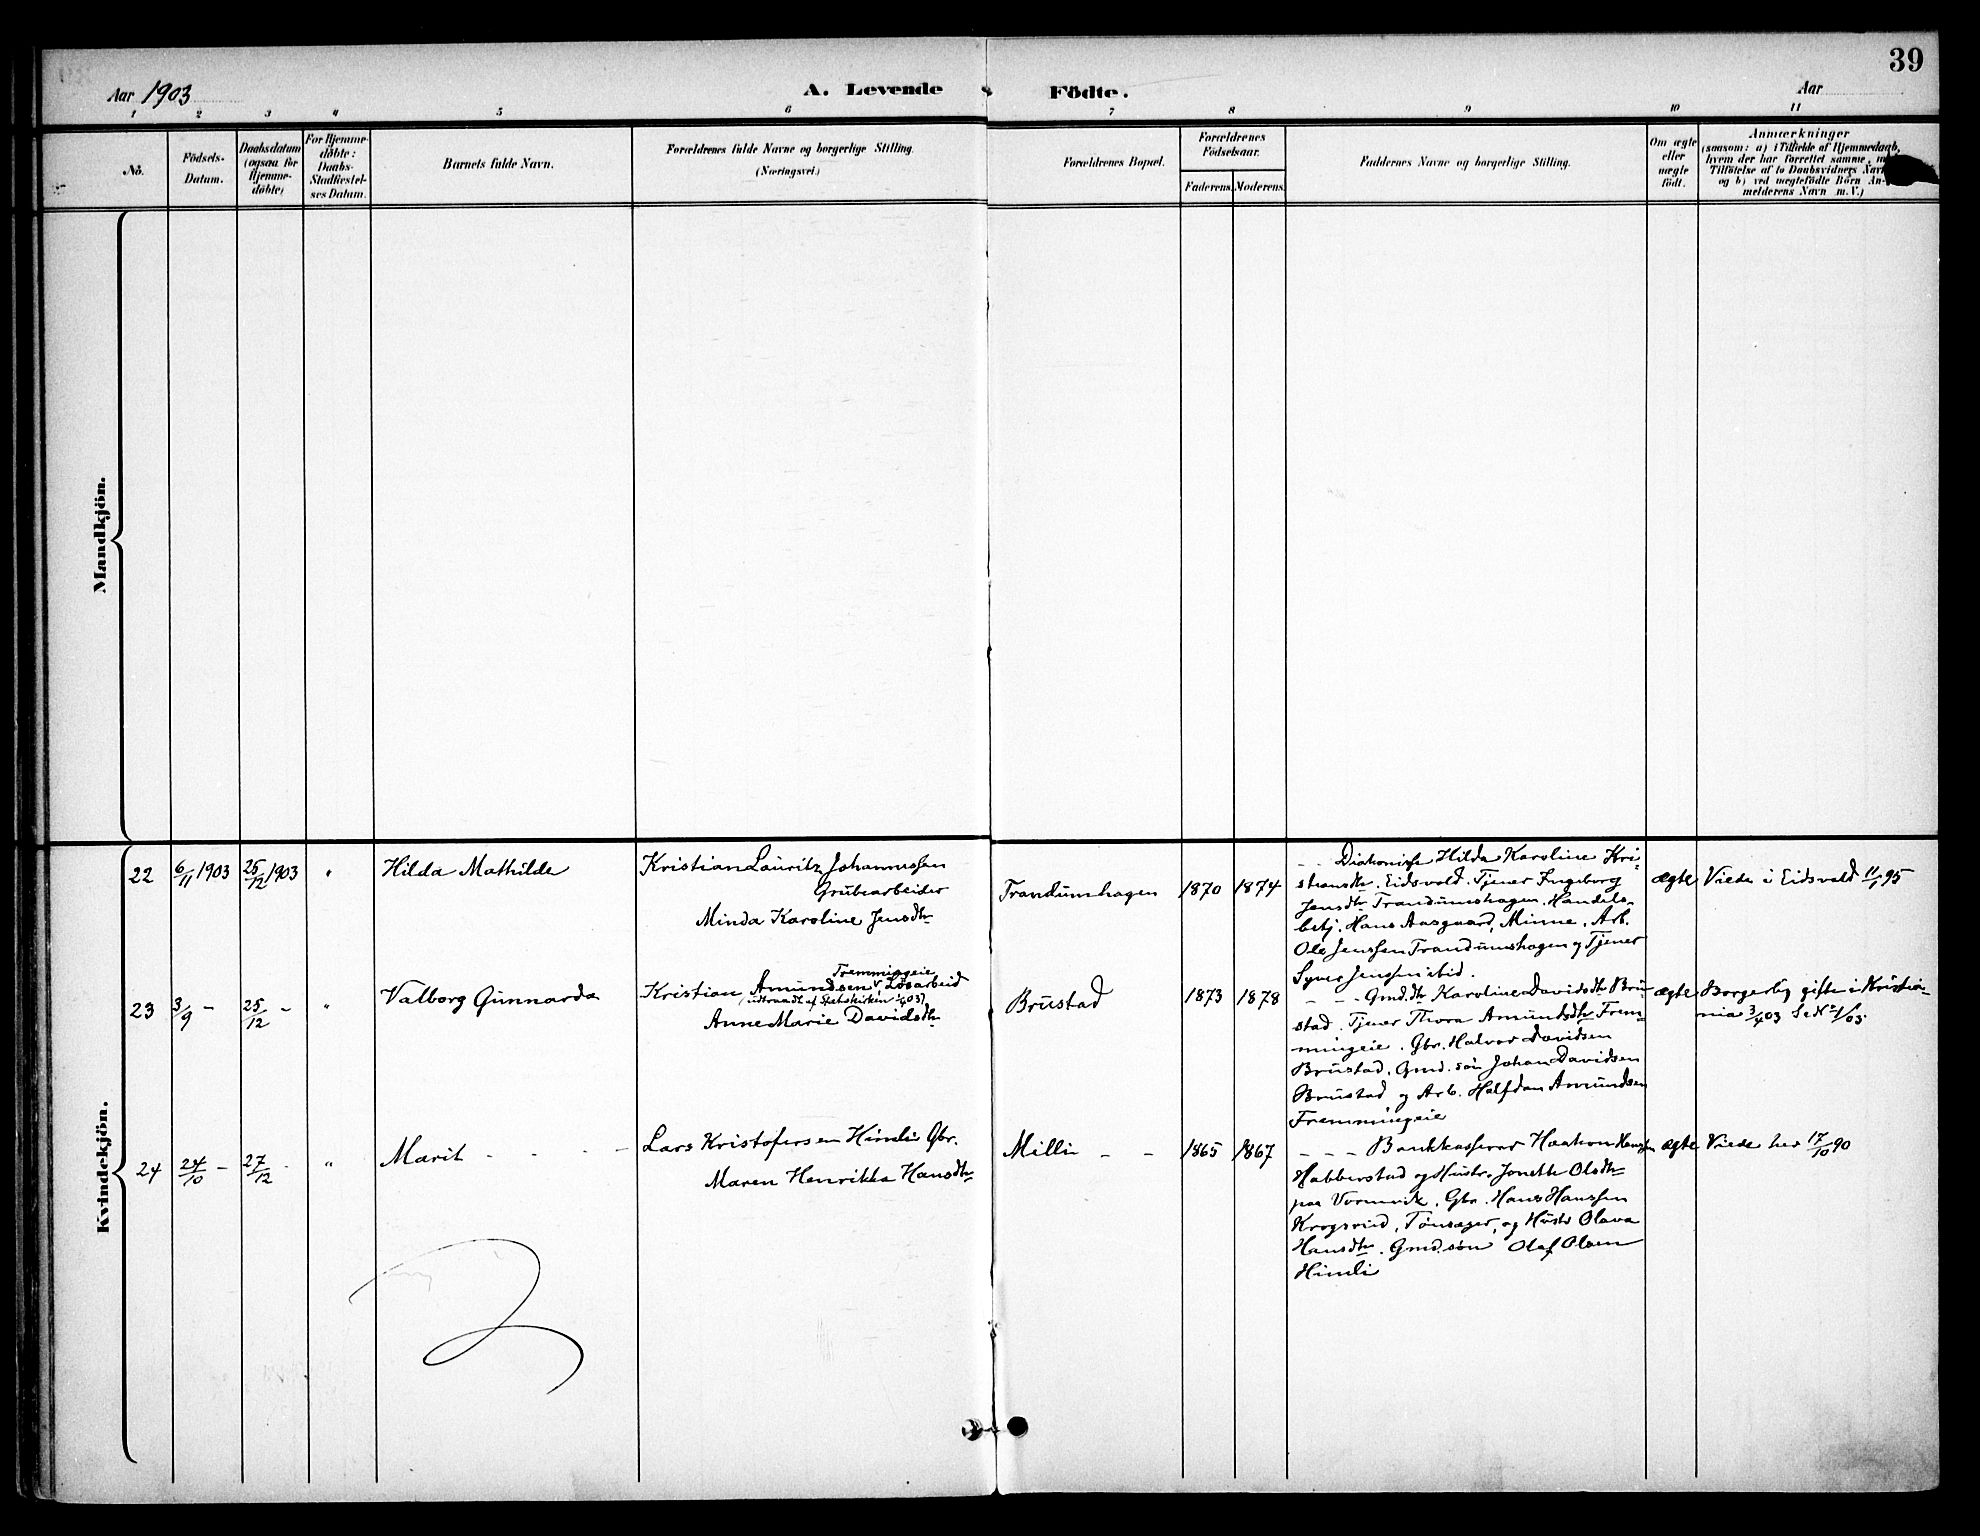 39
Aar 1903
A. Levende
Födte.
Aar
1 2 3 4 5 6 7 8 9 10 11
No.
Födsels-
Datum.
Daabsdatum
(ogsaa for
Hjemme-
döbte)
For Hjemme-
döbte:
Daabs-
Stadfæstel-
ses Datum.
Barnets fulde Navn.
Forældrenes fulde Navne og borgerlige Stilling.
(Næringsvei.)
Forældrenes Bopæl.
Forældrenes
Födselsaar.
Faderens. Moderens.
Faddernes Navne og borgerlige Stilling.
Om ægte
eller
uægte
födt.
Anmærkninger
(saasom: a) i Tilfælde af Hjemmedaab,
hvem der har forrettet samme, m
Tilföielse af to Daabsvidners Nav
og b) ved uægtefödte Börn An-
melderens Navn m.V.)
Mandkjön.
Kvindekjön.
22 6/11 1903 25/12 1903 " Hilda Mathilde
Kristian Lauritz Johannessen
Grubearbeider
Minda Karoline Jensdtr
Trandumhagen 1870 1874
- - Diakonisse Hilda Karoline Kri-
stiansdtr. Eidsvold. Tjener Ingeborg
Jensdtr Trandumshagen. Handels-
betj. Hans Aasgaard, Minne. Arb.
Ole Jenssen Trandumshagen og Tjener
Syver Jenssen ibid.
ægte Viede i Eidsvold 11/1 95
23 3/9 - 25/12 - " Valborg Gunnarda
Fremmingeie
Kristian Amundsen Løsarbeid
(udtraadt af Statskirken 1/4 03)
Anne Marie Davidsdtr
Brustad 1873 1878
- - - Gmd.dtr Karoline Davidsdtr Bru-
stad. Tjener Thora Amundsdtr Frem-
mingeie. Gbr. Halvor Davidsen
Brustad, Gmd. søn Johan Davidsen
Brustad og Arb. Halfdan Amundsen
Fremmingeie
ægte Borgerlig gifte i Kristia-
nia 3/4 03 Se No 1/03
24 24/10 - 27/12 - " Marit - - - -
Lars Kristofersen Himli Gbr.
Maren Henrikka Hansdtr
Milli - - 1865 1867
- - - Bankkasserer Haakon Hanssen
Habberstad og Hustr. Jonette Olsdtr
paa Vormvik. Gbr. Hans Hanssen
Krogsrud, Tønsager, og Hustr Olava
Hansdtr. Gmd. søn Olaf Olsen
Himli
ægte Viede her 17/10 90